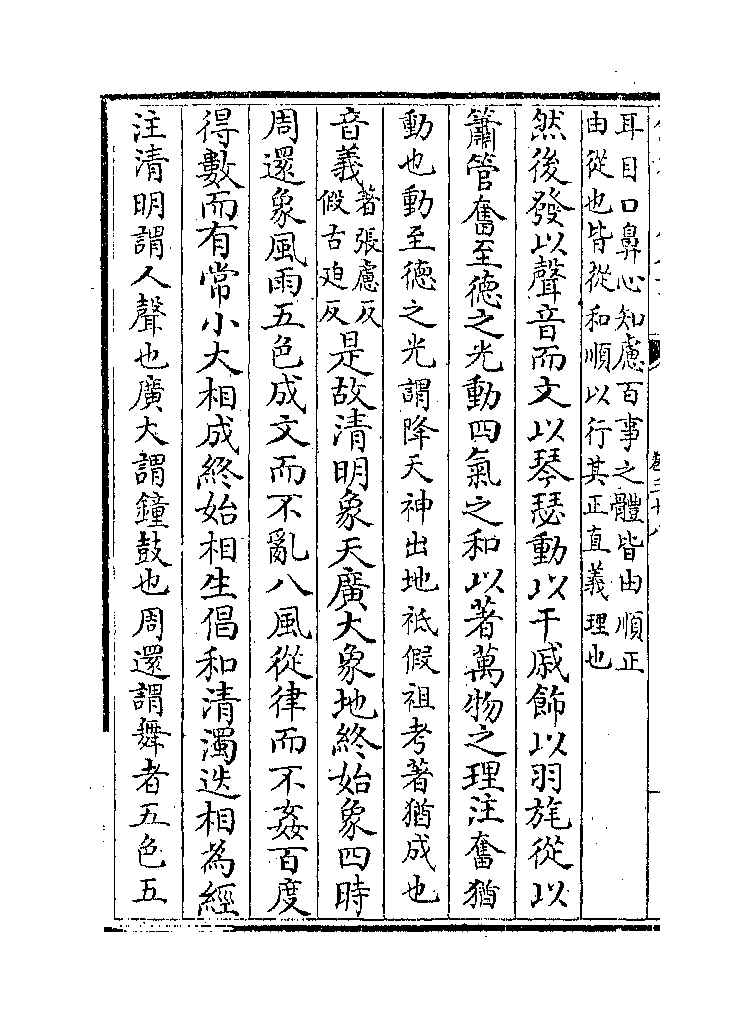 耳目口鼻心知慮百事之體皆由順正
由從也皆從和順以行其正直義理也
然後發以聲音而文以琴瑟動以干戚飾以羽旄從以
簫管奮至德之光動四氣之和以著萬物之理注奮猶
動也動至德之光謂降天神出地祇假祖考著猶成也
音義著張慮反假古廹反是故清明象天廣大象地終始象四時
周還象風雨五色成文而不亂八風從律而不姦百度
得數而有常小大相成終始相生倡和清濁迭相為經
注清明謂人聲也廣大謂鐘鼓也周還謂舞者五色五